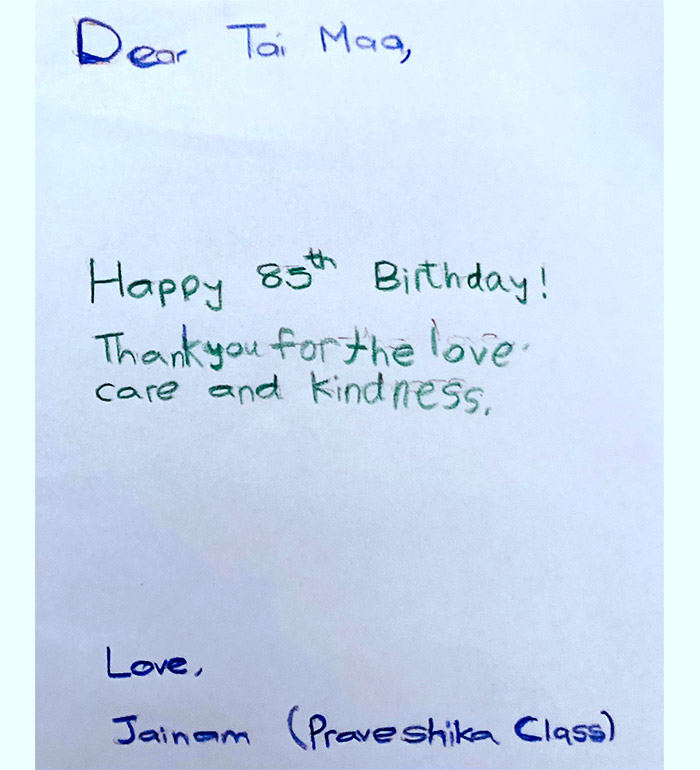 Dear Tai Maa,
Happy 85th Birthday!
Thankyou for the love
care and kindness.
Love,
Jainam (Praveshika Class)